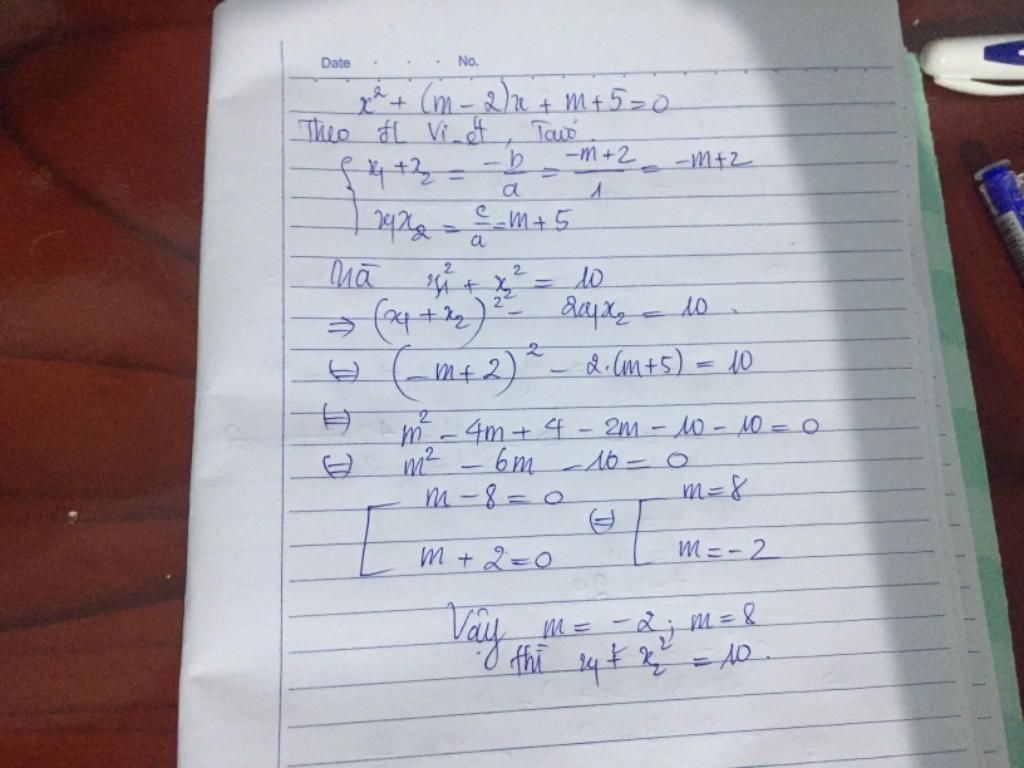 Date . . . No.
x² + (m - 2)x + m + 5 = 0
Theo đl Vi-ét, Ta có
{ x₁ + x₂ = -b/a = -m+2/1 = -m+2
x₁x₂ = c/a = m + 5
Mà x₁² + x₂² = 10
⇒ (x₁ + x₂)² - 2x₁x₂ = 10.
⇔ (-m + 2)² - 2.(m+5) = 10
⇔ m² - 4m + 4 - 2m - 10 - 10 = 0
⇔ m² - 6m - 16 = 0
[ m - 8 = 0 ⇔ [ m = 8
m + 2 = 0 m = -2
Vậy m = -2; m = 8
thì x₁ + x₂² = 10.